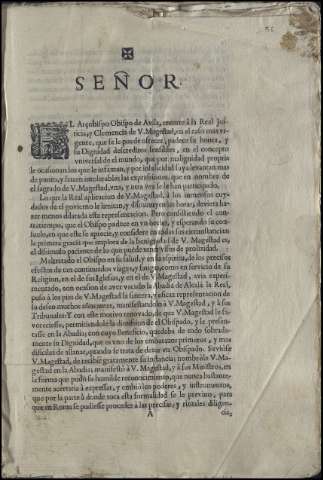 SEÑOR.
EL Arçobispo Obispo de Avila, recurre à la Real Jus-
ticia, y Clemencia de V. Magestad, en el caso mas ur-
gente, que se le puede ofrecer, padece su honra, y
su Dignidad descreditos sensibles, en el concepto
universal de el mundo, que por malignidad propria
le ocasionan los que le infaman, y por infelicidad suya levantan mas
de punto, y hazen intolerables las expressiones, que en nombre de
el sagrado de V. Magestad, una, y otra vez se le han participado.
Lo que la Real aplicacion de V. Magestad, à los inmensos cuy-
dados de el govierno le limitan, y dissminuyen las horas, deviera ha-
zer menos dilatada esta representacion. Pero considerando el con-
tratiempo, que el Obispo padece en su honra, y esperando su con-
suelo, en que este lo aprecie, y considere en todas sus circunstancias
la primera gracia que implora de la benignidad de V. Magestad es
el dissimulo paciente de lo que puede tener viso de prolixidad.
Maltratado el Obispo en su salud, y en su espiritu, de los precisos
efectos de tan continuados viages, y fatigas, como en servicio de su
Religion, en el de sus Iglesias, y en el de V. Magestad, avia experi-
mentado, con ocasion de aver vacado la Abadia de Alcalà la Real,
puso à los pies de V. Magestad la sincera, y eficaz representacion de
su deseo muchos años antes, manifestando à V. Magestad, y à sus
Tribunales: Y con este motivo renovado, de que V. Magestad le fa-
vorecisse, permitiendole la dimission de el Obispado, y le presen-
tasse en la Abadia; con cuyo Beneficio, quedaba de todo sobrada-
mente su Dignidad, que es uno de los embarazos primeros, y mas
dificiles de allanar, quando se trata de dexar un Obispado. Sirviòse
V. Magestad, de recibir gratamente su instancia; nombròle V. Ma-
gestad en la Abadia; manifestò à V. Magestad, y à sus Ministros, en
la forma que pudo su humilde reconocimiento, que nunca bastante-
mente acertaria à expressar, y embiò los poderes, y instrumentos,
que por la parte à donde toca esta formalidad se le previno, para
que en Roma se pudiesse proceder à las precisas, y rituales diligen-
A
cias,